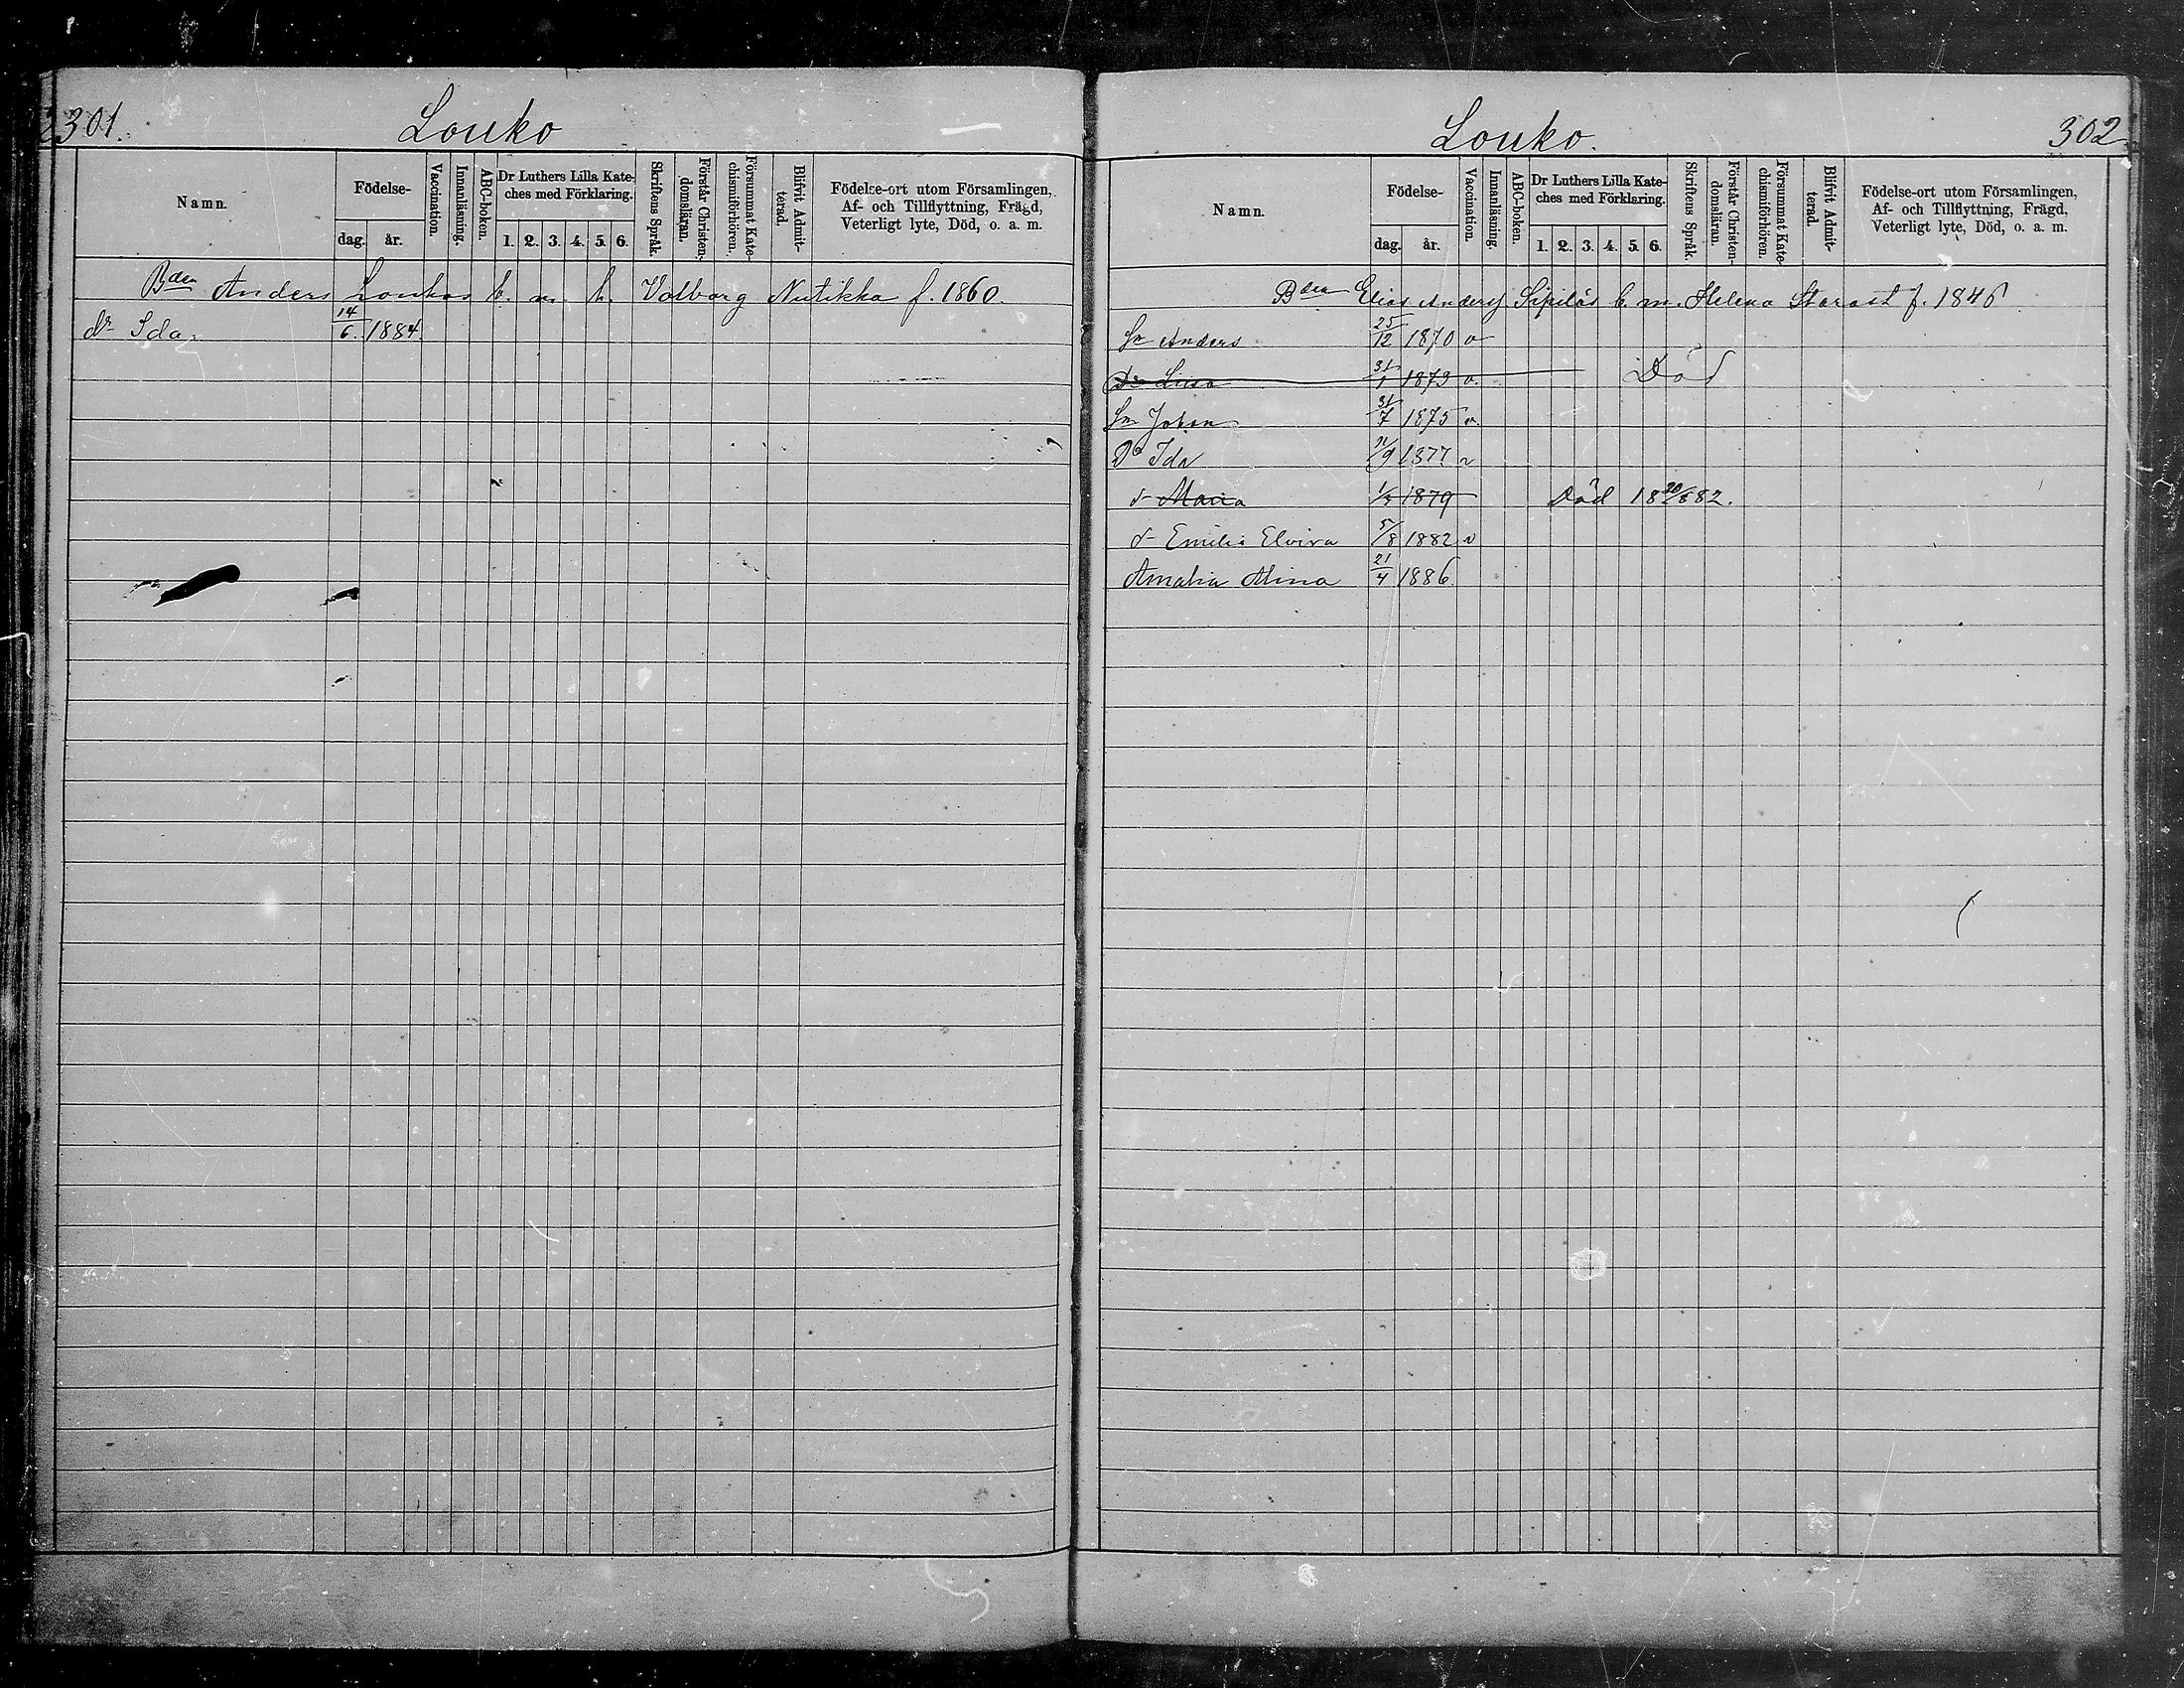 301.
Louko
Namn.
Födelse-
dag.
år.
Vaccination.
Innanläsning.
ABC-boken.
Dr Luthers Lilla Kate-
ches med Förklaring.
1. 2. 3. 4. 5. 6.
Skriftens Språk.
Förstår Christen-
domsläran.
Försummat Kate-
chismiförhören.
Blifvit Admit-
terad.
Födelse-ort utom Församlingen,
Af- och Tillflyttning, Frägd,
Veterligt lyte, Död, o. a. m.
Bden Anders Loukos b. m. h. Valborg Nutikka f. 1860.
dr Ida 14/6. 1884.
Louko.
302
Namn.
Födelse-
dag.
år.
Vaccination.
Innanläsning.
ABC-boken.
Dr Luthers Lilla Kate-
ches med Förklaring.
1. 2. 3. 4. 5. 6.
Skriftens Språk.
Förstår Christen-
domsläran.
Försummat Kate-
chismiförhören.
Blifvit Admit-
terad.
Födelse-ort utom Församlingen,
Af- och Tillflyttning, Frägd,
Veterligt lyte, Död, o. a. m.
Bden Elias Anders Sipilás b. m. Helena Starast f. 1846
Sn Anders 25/12 1870 v
Dr Lisa 31/1 1873 v. Död
Sn Johan 31/7 1875 v.
Dr Ida /9 1877 v
d Maria 1879 Död 1882.
d Emilia Elvira 5/8 1882 v
Amalia Alina 21/4 1886.